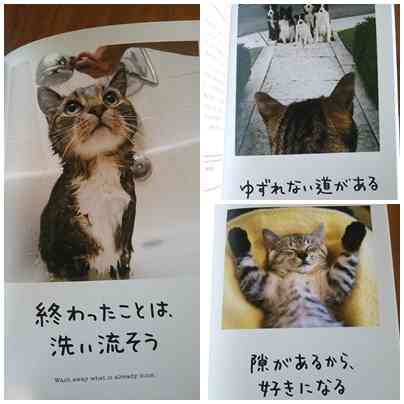 終わったことは、
洗い流そう
Wash away what is already done.
ゆずれない道がある
隙があるから、
好きになる